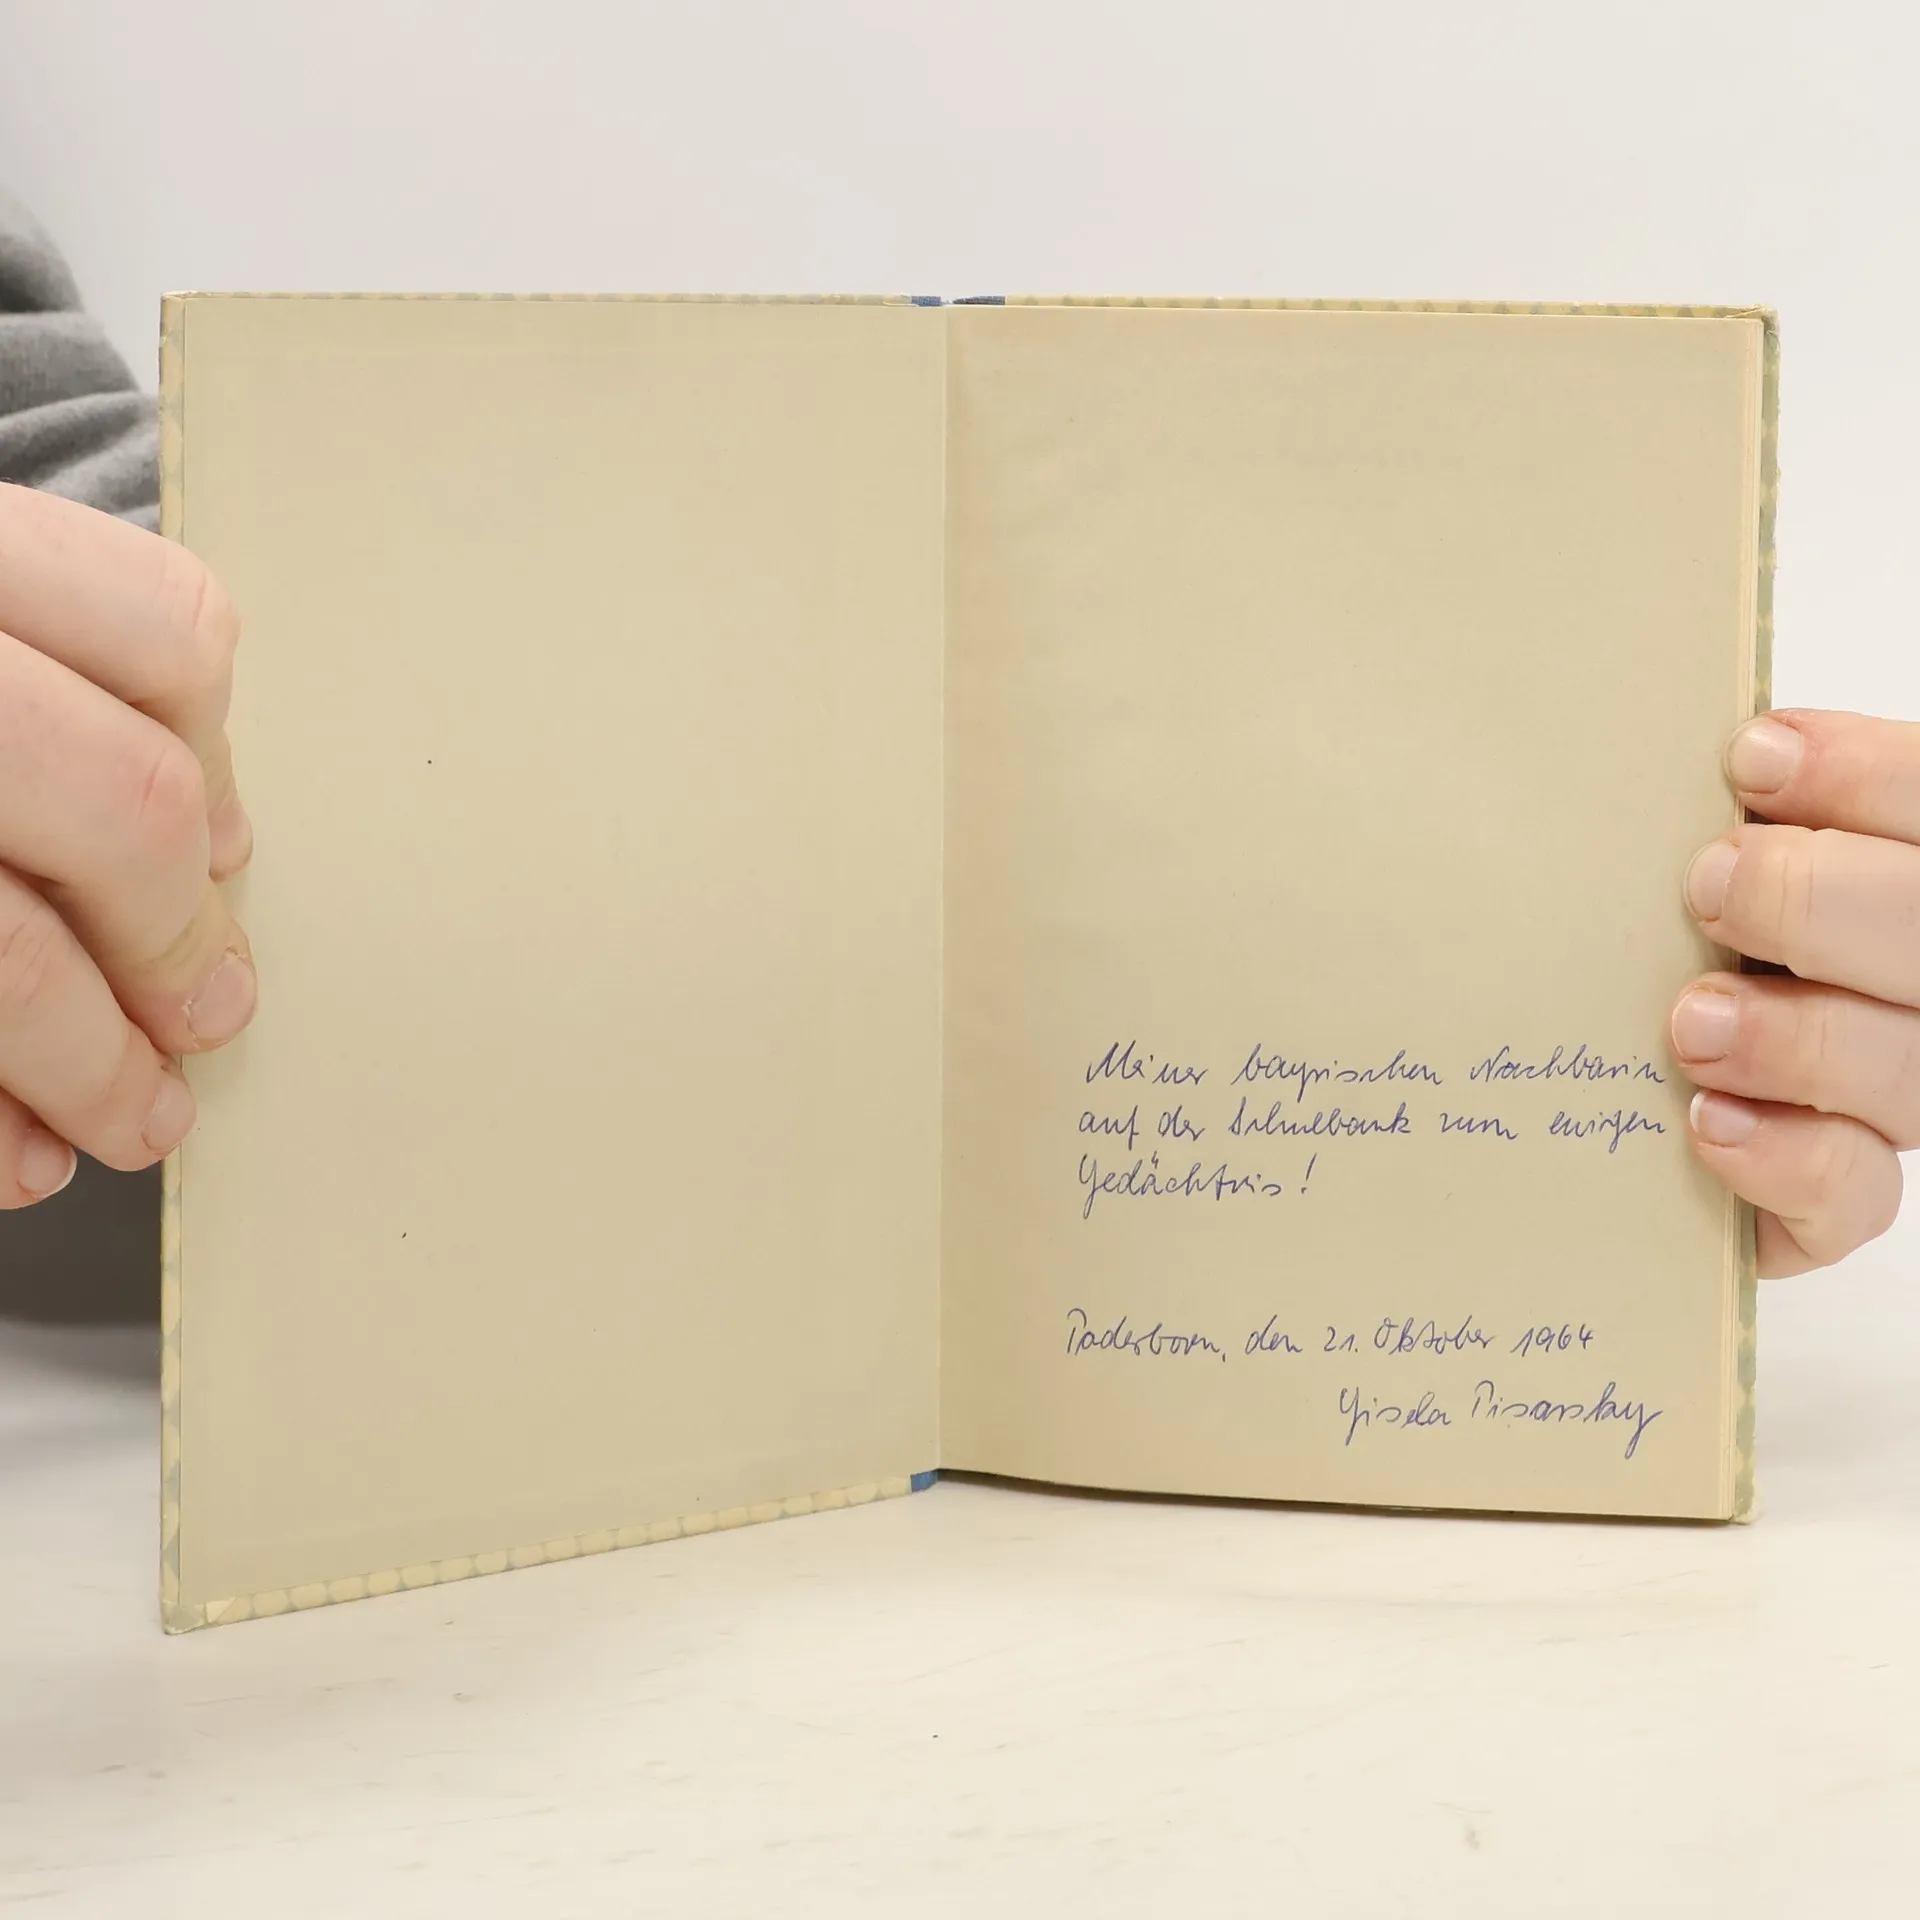 Meiner bayrischen Nachbarin
auf der Schulbank zum ewigen
Gedächtnis!
Paderborn, den 21. Oktober 1964
Gisela Pisarsky